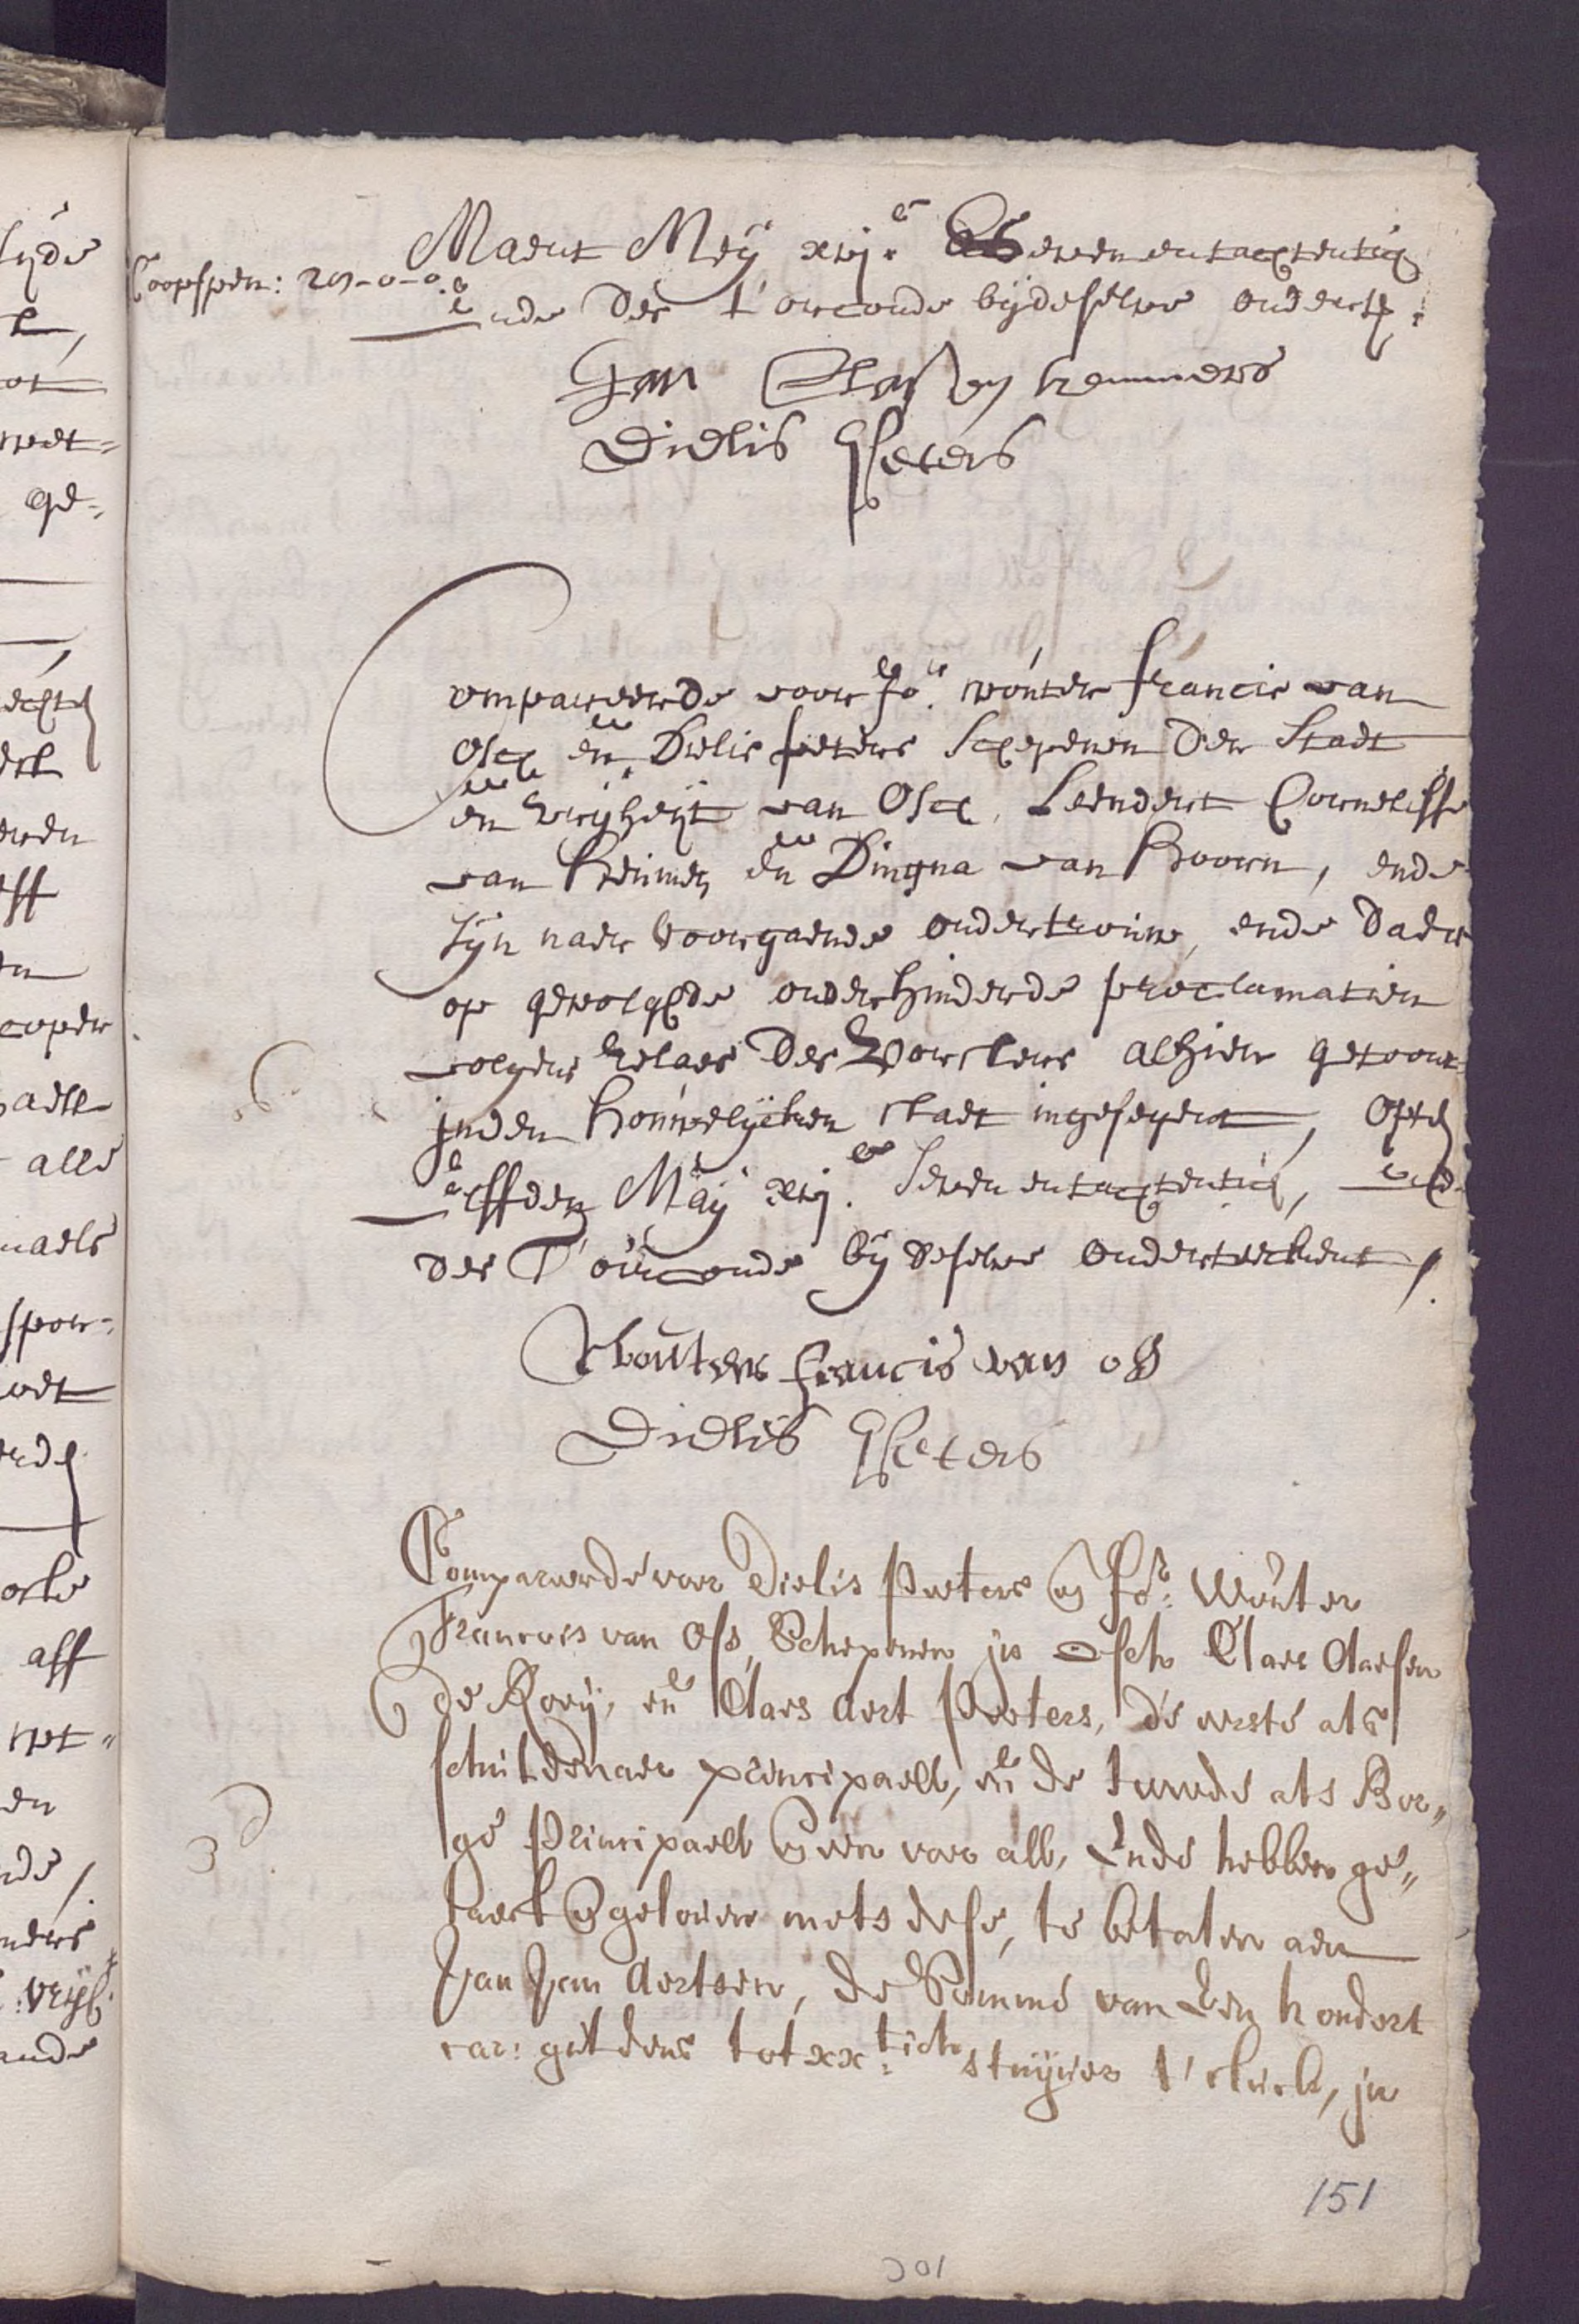 Coopspen: 29-0-0.
Maent Meij xvjc Seven entachtentich
Ende des t'orconde bijdeselve onderts.
Jan Claessen hemmers
Dielis Peters
Compareerde voor Jor. wouter francis van
Osch en Dielis peters Schepenen der Stadt
en vrijheijt van Osch, Leendert Cornelisse
van en Dingna van Hoorn, ende
sijn naer voorgaende ondertrouw, ende daer
op gevolghde onverhinderde proclamatien
volgens Relaes des Vorsters alhier gethoont
inden houwelijcken staet ingesegent, Opten
elffden Maij xvjc. Seven entachtentich, ende
des T'oirconde bij deselve onderteekent /.
Wouter francis van oss
Dielis Peters
Compareerde voor Dielis Peeters en Jor: Wouter
Francois van Oss, Schepenen in Osch Claes Claessen
de Rooij, en Claes Aert Peeters, de eerste als
schuldenaer principaell, en de tweede als Bor„
ge Principaell een voor all, Ende hebben ge„
laeft gelooven mets dese, te betalen aen
Jan Jan Aertsen, de Somme van Een hondert
car: guldens tot xx:tich stuijver t'stuck, in
151